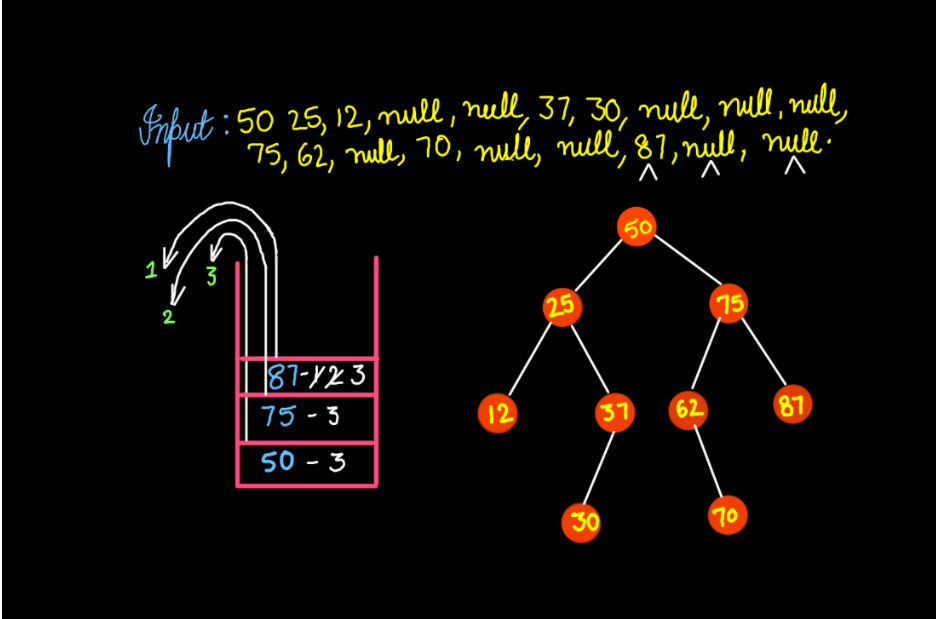 Input : 50 25, 12, null, null, 37, 30, null, null, null,
75, 62, null, 70, null, null, 87, null, null.
1
3
2
87 - 1 2 3
75 - 3
50 - 3
50
25
75
12
37
62
87
30
70